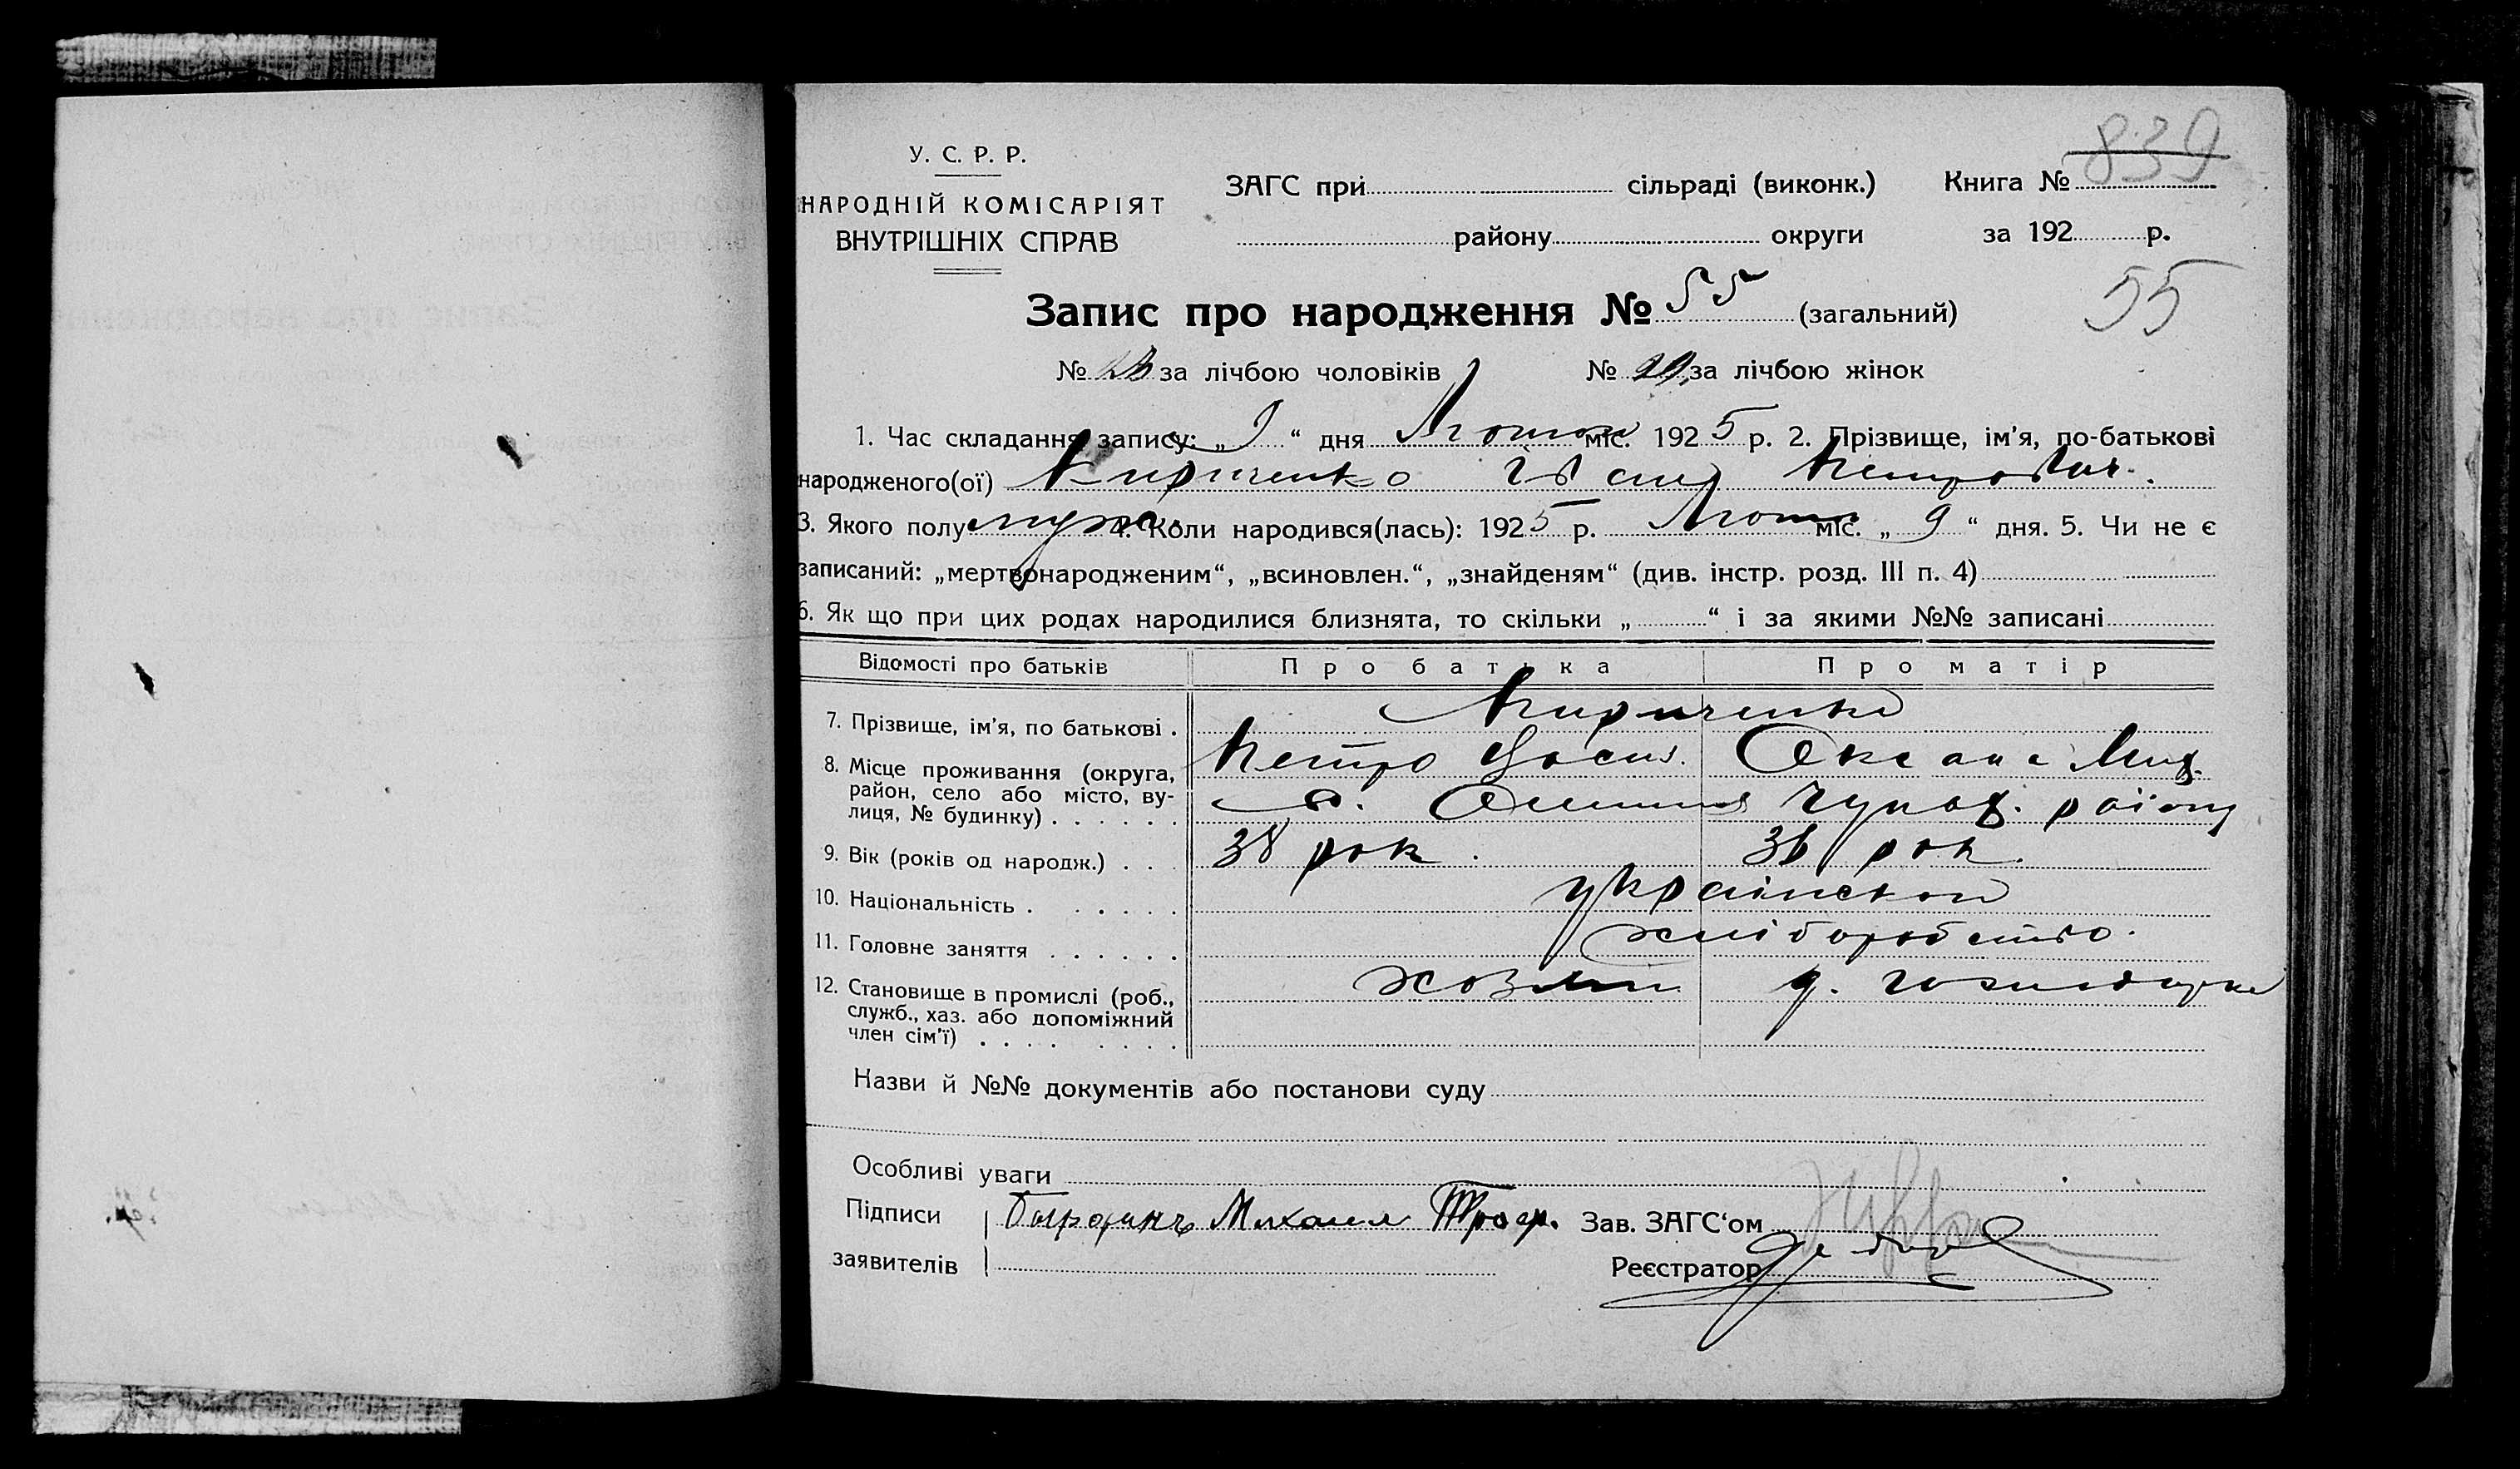 839
У. С. Р. Р.
НАРОДНІЙ КОМІСАРІЯТ
ВНУТРІШНІХ СПРАВ
ЗАГС при сільраді (виконк.) Книга №
району округи за 192 р.
55
Запис про народження № 55 (загальний)
№ за лічбою чоловіків № за лічбою жінок
1. Час складання запису: „ 9 “ дня Лютого міс. 1925 р. 2. Прізвище, ім'я, по-батькові
народженого(ої) Кириченко Петрович.
3. Якого полу муж. 4. Коли народився(лась): 1925 р. Лютого міс. „ 9 “ дня. 5. Чи не є
записаний: „мертвонародженим“, „всиновлен.“, „знайденям“ (див. інстр. розд. III п. 4)
6. Як що при цих родах народилися близнята, то скільки „ “ і за якими №№ записані
Відомості про батьків Про батька Про матір
7. Прізвище, ім'я, по батькові . Кириченко
Петро Оксана
8. Місце проживання (округа, район, село або місто, вулиця, № будинку) . . . . . . району
9. Вік (років од народж.) . . . 38 рок. 36 рок.
10. Національність . . . . . . українской
11. Головне заняття . . . . . . хліборобство.
12. Становище в промислі (роб., служб., хаз. або допоміжний член сім'ї) . . . . . . . . хозяїн
Назви й №№ документів або постанови суду
Особливі уваги
Підписи Михаил Троф. Зав. ЗАГС'ом
заявителів Реєстратор